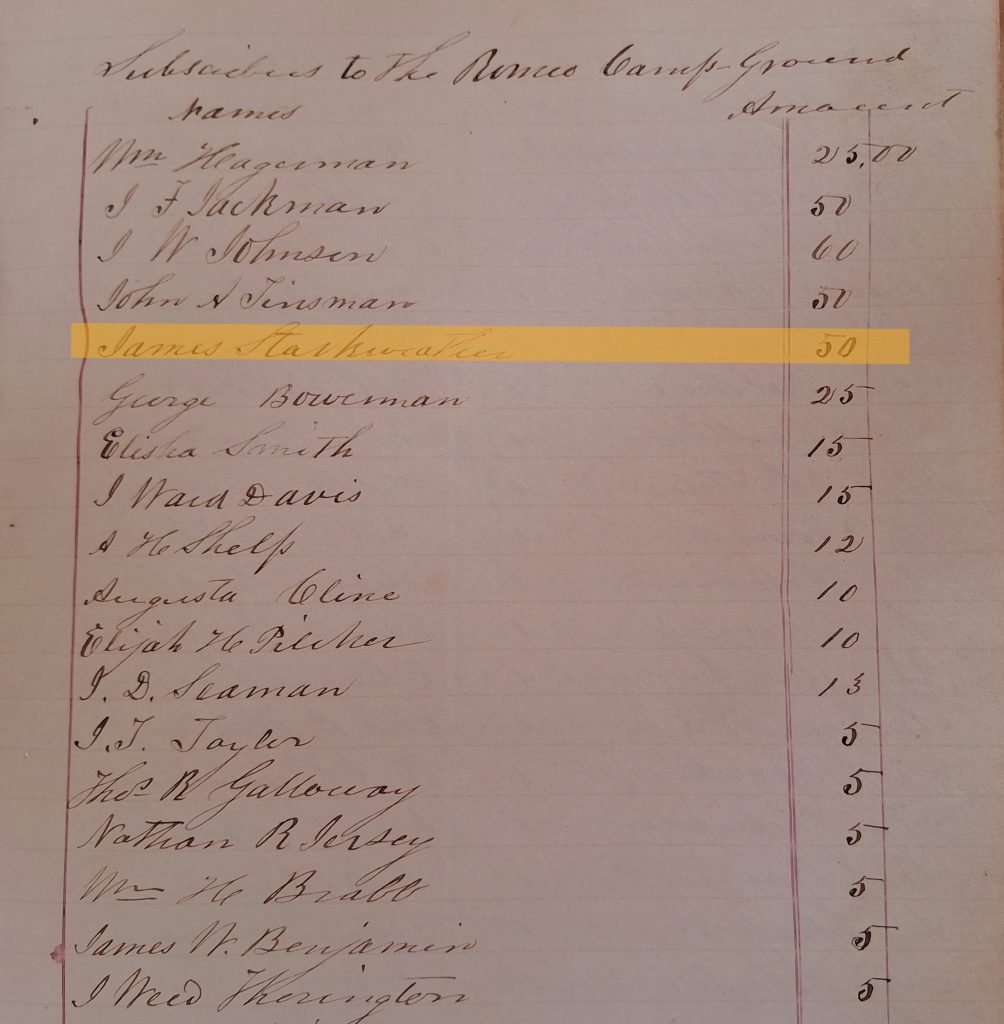 Subscribers to the Romeo Camp-Ground
Names Amount
Wm Hagerman 25.00
J F Jackman 50
J W Johnson 60
John A Tinsman 50
James Starkweather 50
George Bowerman 25
Elisha Smith 15
J Ward Davis 15
A H Shelp 12
Augusta Cline 10
Elijah H Pilcher 10
J. D. Seaman 13
J. T. Taylor 5
Thos R Galloway 5
Nathan R Jersey 5
Wm H Brabb 5
James W. Benjamin 5
J Weed Thorington 5